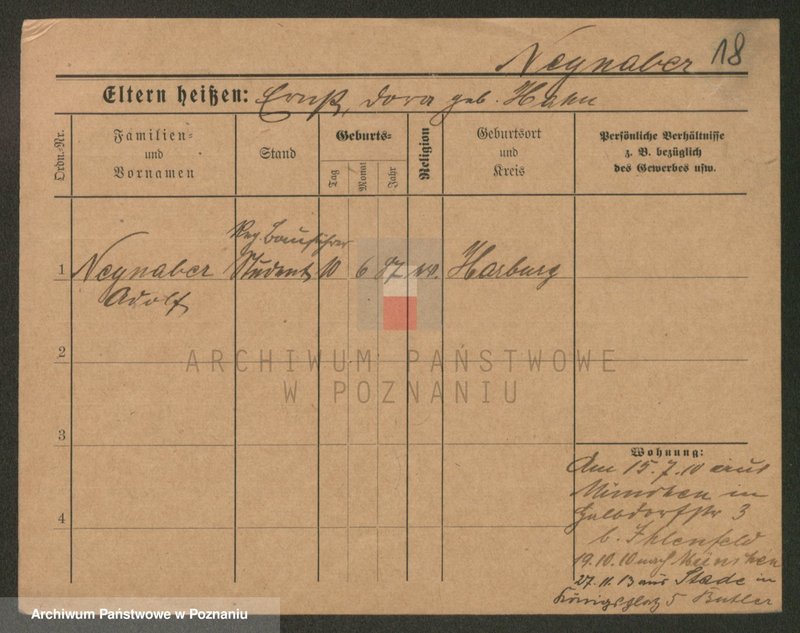 Neynaber 18
Eltern heißen: Ernst, Dora geb. Hahn
Ordn.-Nr.
Familien- und Vornamen
Stand
Geburts-
Tag
Monat
Jahr
Religion
Geburtsort und Kreis
Persönliche Verhältnisse
z. B. bezüglich
des Gewerbes usw.
Reg. Bauführer
1 Neynaber Student 10 6 87 ev. Harburg
Adolf
2
ARCHIWUM PAŃSTWOWE
W POZNANIU
3
4
Wohnung:
Am 15.7.10 aus
München in
3
b. Ihlenfeld
19.10.10 nach München
27.11.13 aus Stade in
Königsplatz 5 Butler
Archiwum Państwowe w Poznaniu